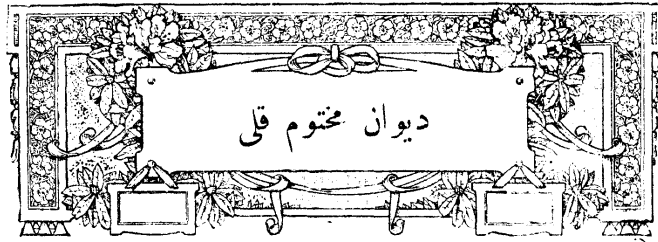 ديوان مختوم قلى